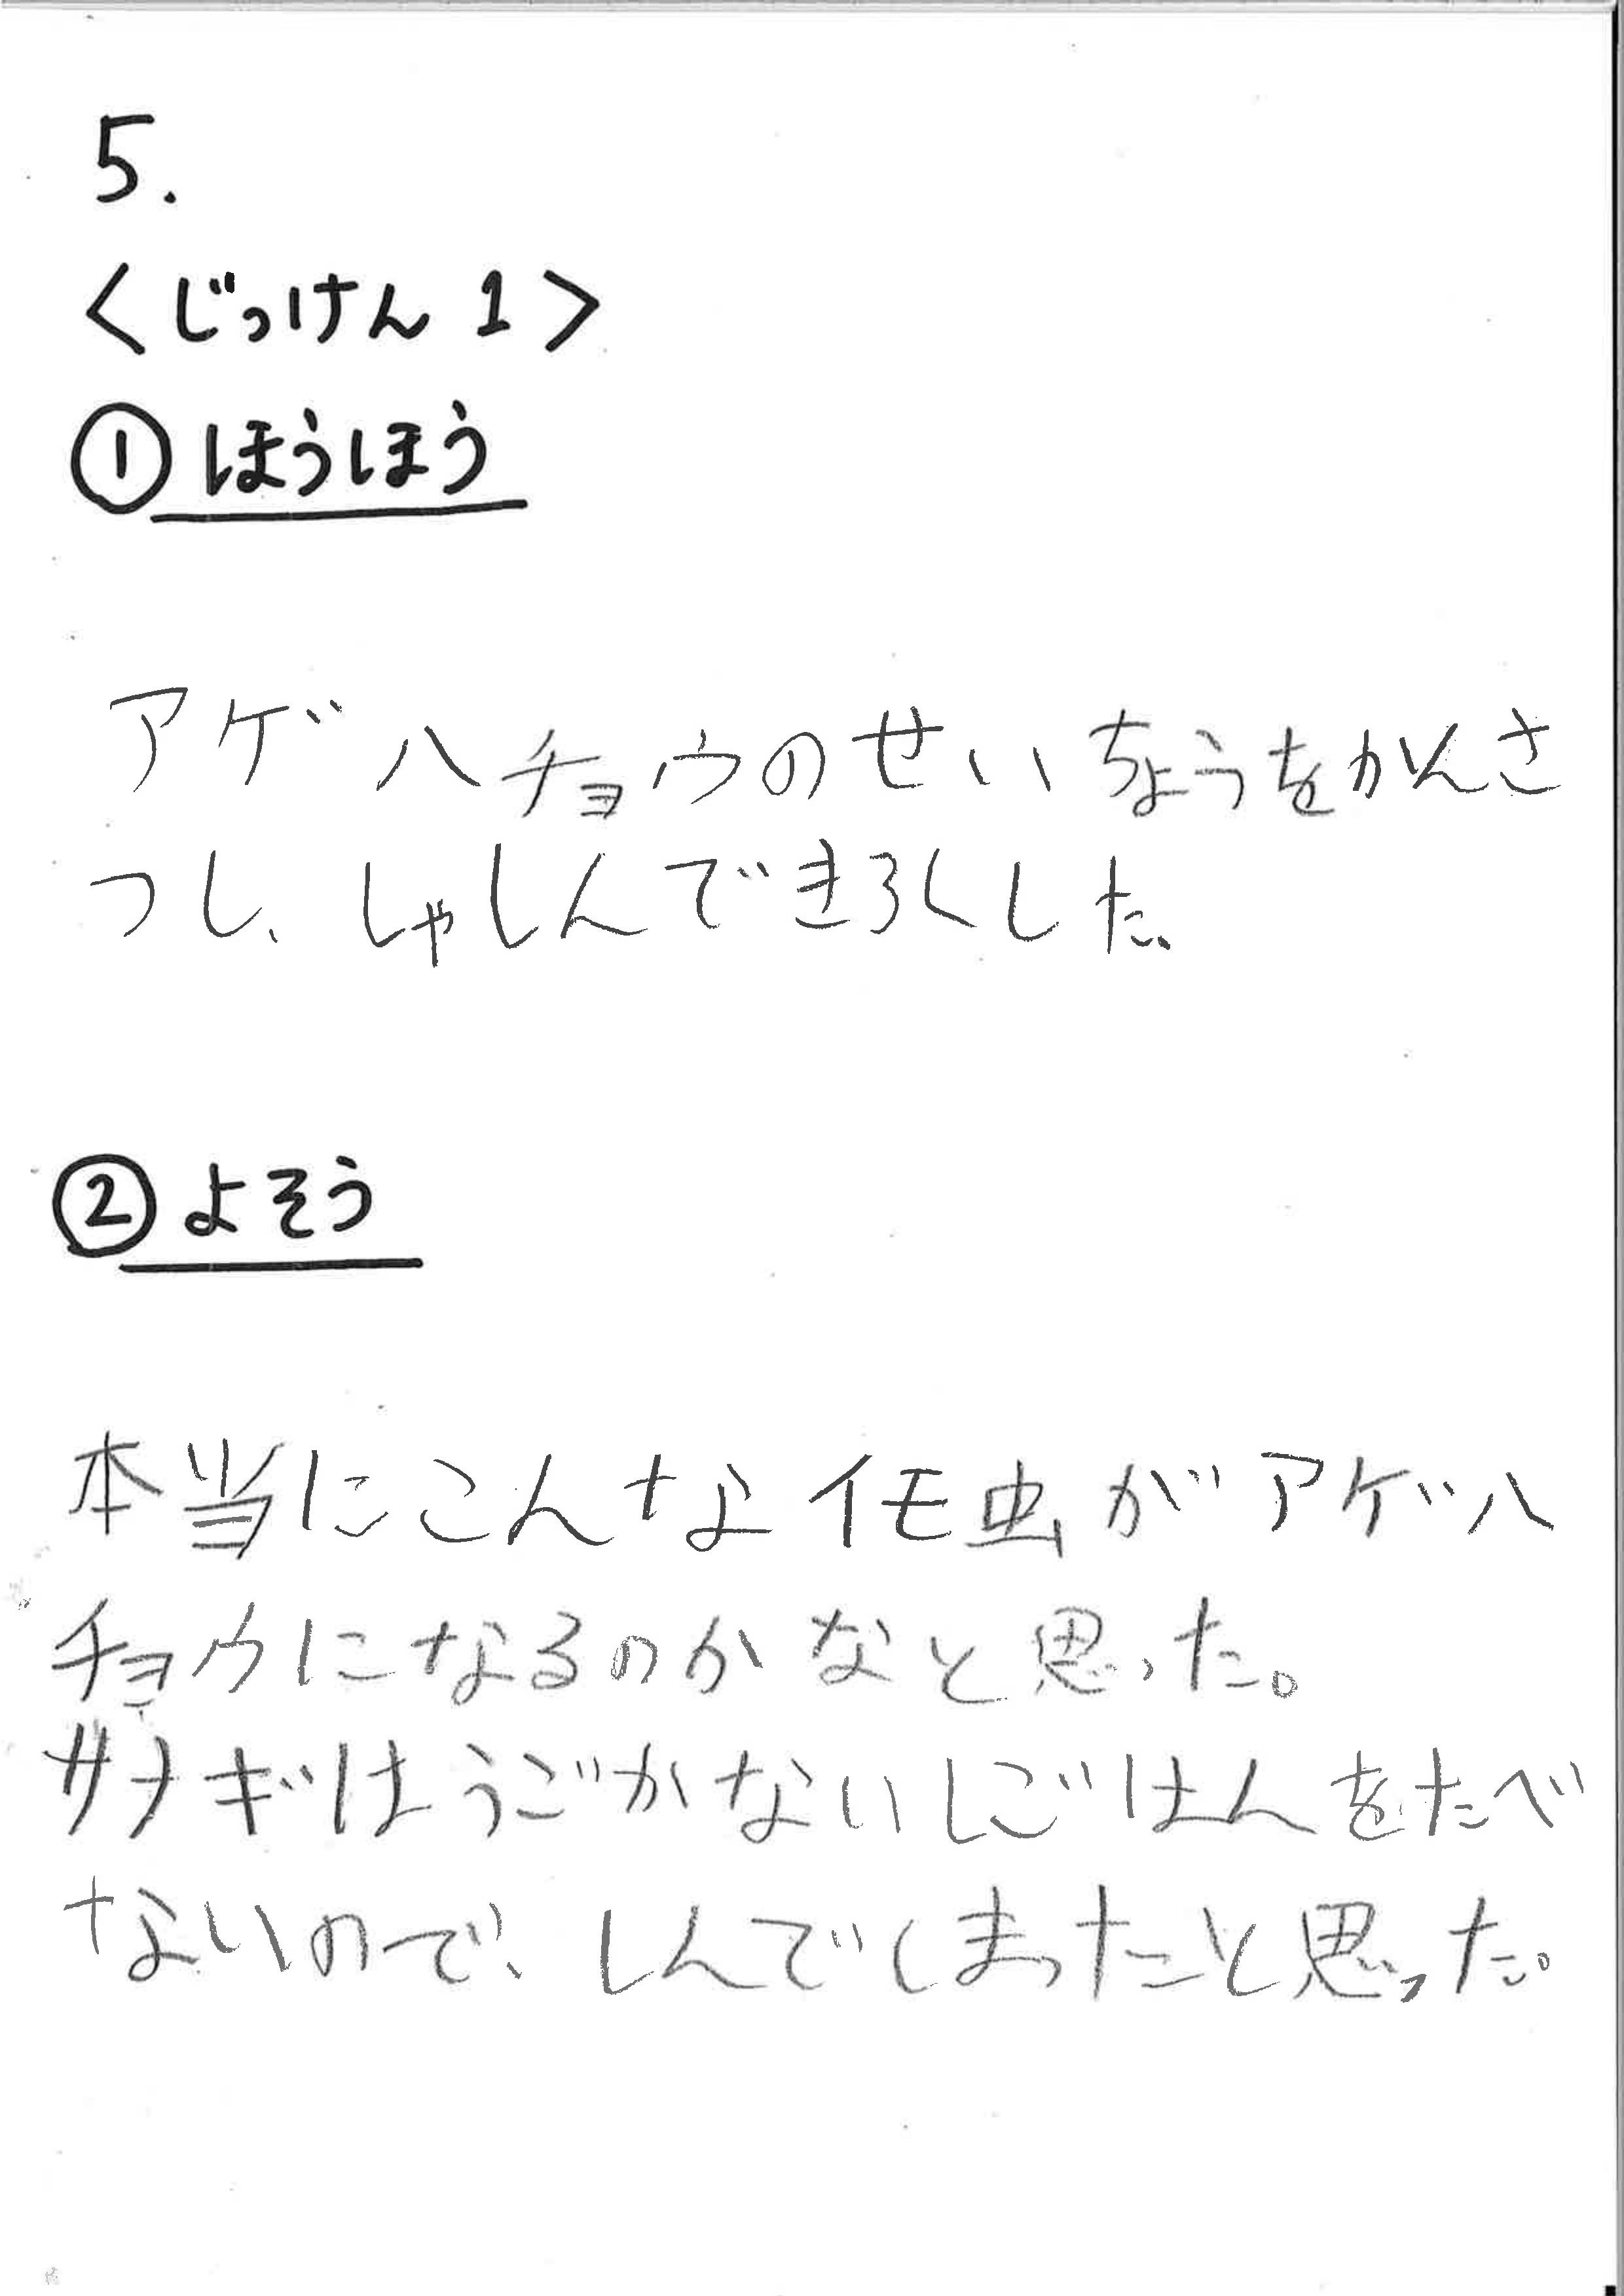 5.
＜じっけん 1＞
① ほうほう
アゲハチョウのせいちょうをかんさ
つし、しゃしんできろくした。
② よそう
本当にこんなイモ虫がアゲハ
チョウになるのかなと思った。
サナギはうごかないしごはんをたべ
ないので、しんでしまったと思った。